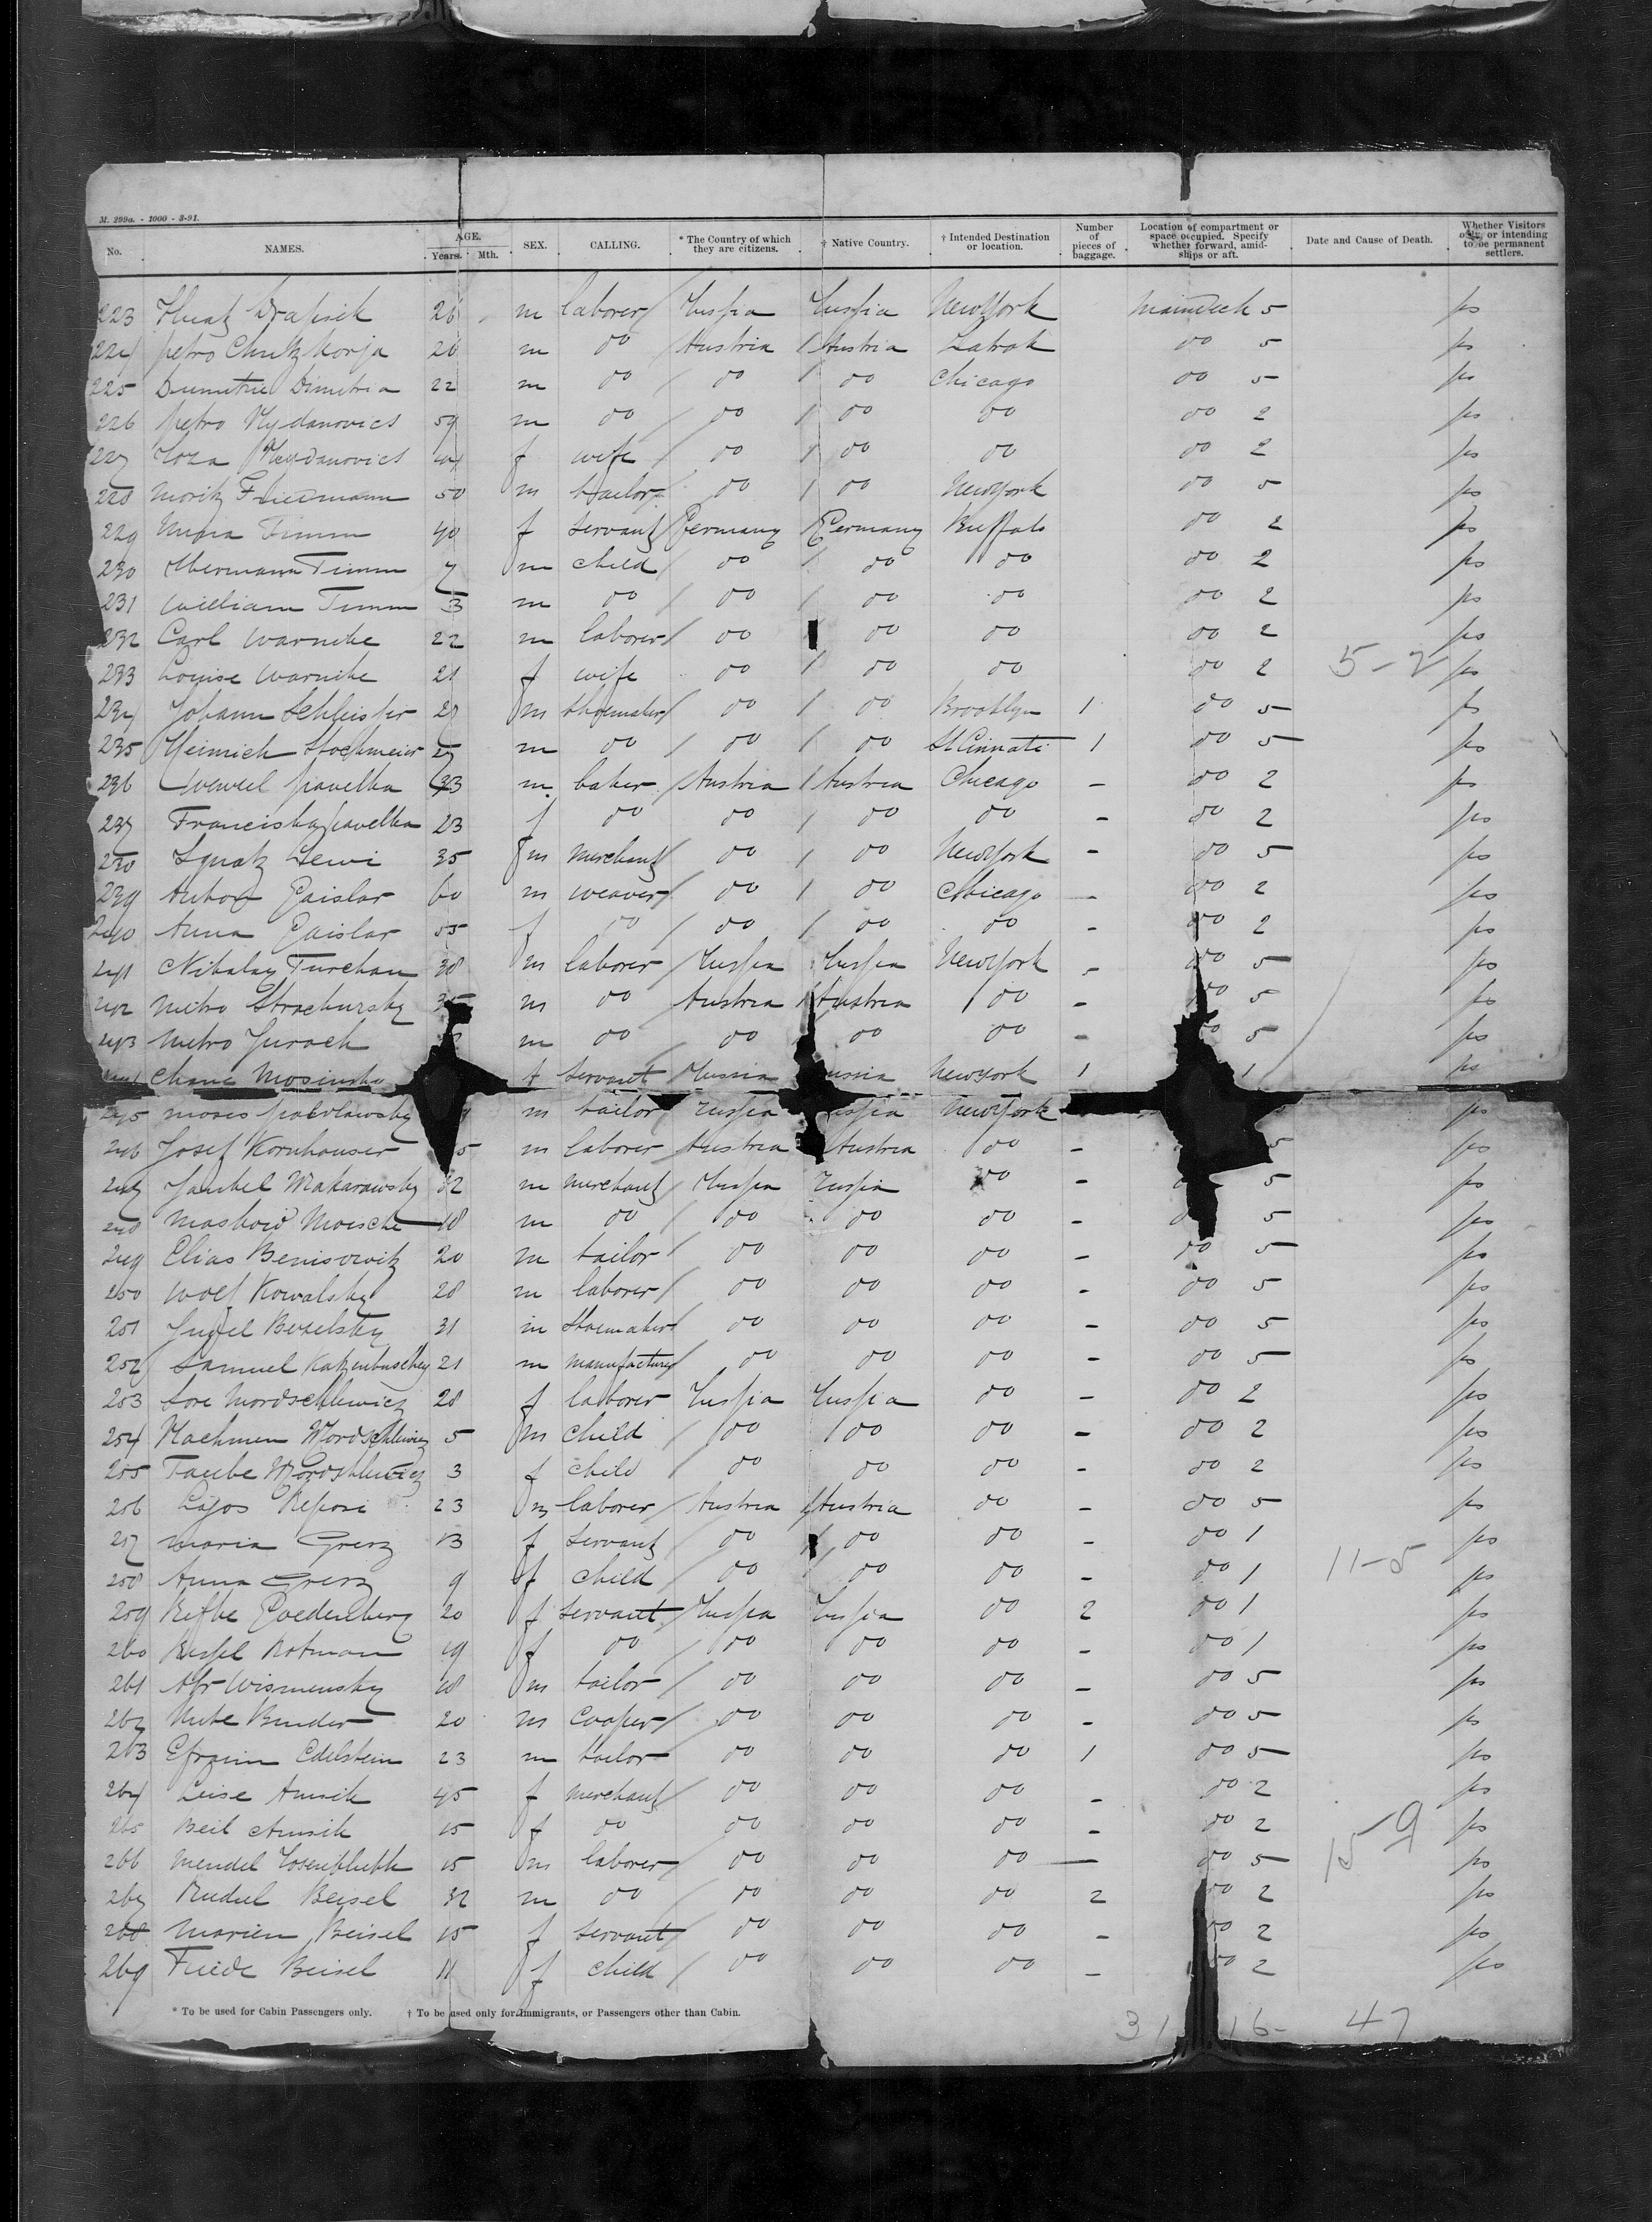 M. 299a. - 1000 - 3-91.
No. NAMES. AGE. Years. Mth. SEX. CALLING. * The Country of which they are citizens. † Native Country. † Intended Destination or location. Number of pieces of baggage. Location of compartment or space occupied. Specify whether forward, amidships or aft. Date and Cause of Death. Whether Visitors only, or intending to be permanent settlers.
223 26 m laborer New York Maindeck 5 ps
224 petro 26 m do Austria Austria do 5 ps
225 Dumitru Dimitria 22 m do do do Chicago do 5 ps
226 petro Nydanovics 59 m do do do do do 2 ps
227 f wife do do do do 2 ps
228 Moritz Friedmann 50 m tailor do do New York do 5 ps
229 Timm 40 f servant Germany Germany Buffalo do 2 ps
230 Hermann Timm 7 m child do do do do 2 ps
231 William Timm 3 m do do do do do 2 ps
232 Carl Warnike 22 m laborer do do do do 2 ps
233 Louise Warnike 21 f wife do do do do 2 5-2 ps
234 Johann Schleister m shoemaker do do Brooklyn 1 do 5 ps
235 Heinrich Stockmeier 27 m do do do St Cinnati 1 do 5 ps
236 pavelka m baker Austria Austria Chicago - do 2 ps
237 Franciska pavelka 23 f do do do do - do 2 ps
238 Ignatz Lewi 35 m merchant do do New York - do 5 ps
239 Anton Gaislar 60 m weaver do do Chicago - do 2 ps
240 Anna Gaislar 55 f do do do do - do 2 ps
241 Nikalay Turchan 38 m laborer Russia Russia New York - do 5 ps
242 Mitro Strachursky m do Austria Austria do - do 5 ps
243 Mitro Jurach m do do do do - do 5 ps
Chane Mosinska f servant Russia ussia New York 1 1 ps
245 Moses m tailor Russia ussia New York ps
246 Josef Kornhauser 5 m laborer Austria Austria do - 5 ps
247 Jankel Makarawsky 32 m merchant Russia Russia do - 5 ps
248 Moskowid Moische 18 m do do do do - 5 ps
249 Elias Benisowitz 20 m tailor do do do - do 5 ps
250 Wolf Kowalsky 28 m laborer do do do - do 5 ps
251 31 m shoemaker do do do - do 5 ps
252 Samuel Katzenbuschky 21 m manufacturer do do do - do 5 ps
253 Sore Mordschlewicz 28 f laborer Russia Russia do - do 2 ps
254 Nachmen Mordschlewicz 5 m child do do do - do 2 ps
255 Taube Mordschlewicz 3 f child do do do - do 2 ps
256 Lajos 23 m laborer Austria Austria do - do 5 ps
257 Maria Gresz 13 f servant do do do - do 1 ps
258 Anna Gresz 9 f child do do do - do 1 11-5 ps
259 Rifke Goldenberg 20 f servant Russia Russia do 2 do 1 ps
260 Rotman 19 f do do do do - do 1 ps
261 Wismensky 18 m tailor do do do - do 5 ps
262 Binder 20 m cooper do do do - do 5 ps
263 Efraim Edelstein 23 m tailor do do do 1 do 5 ps
264 Leise Amsik 45 f merchant do do do - do 2 ps
265 Beil Amsik 15 f do do do do - do 2 ps
15-9
266 Mendel 15 m laborer do do do - do 5 ps
267 Beisel 32 m do do do do 2 do 2 ps
268 Marien Beisel 15 f servant do do do - do 2 ps
269 Friede Beisel 11 f child do do do - do 2 ps
* To be used for Cabin Passengers only. † To be used only for Immigrants, or Passengers other than Cabin.
31 16- 47